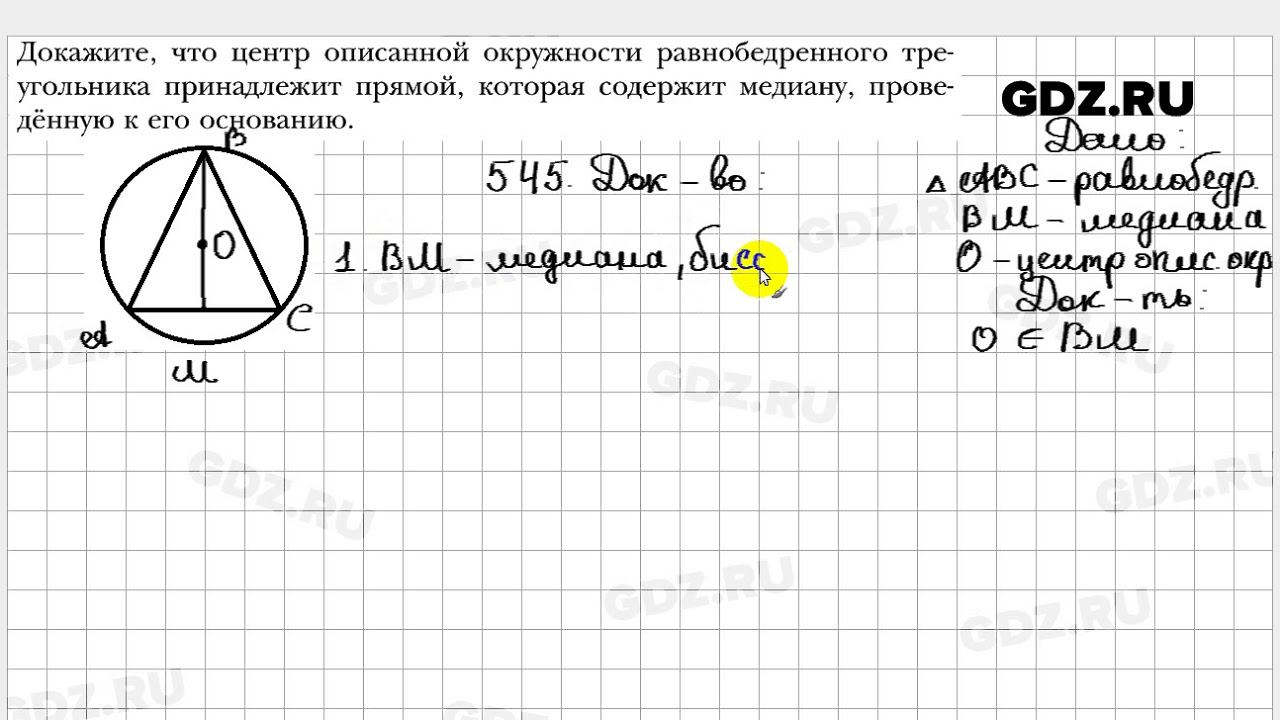 Докажите, что центр описанной окружности равнобедренного тре-
угольника принадлежит прямой, которая содержит медиану, прове-
дённую к его основанию.
GDZ.RU
Дано:
545. Док-во:
△ ABC - равнобедр.
BM - медиана
1. BM - медиана, бисс
O - центр опис. окр
Док-ть:
O ∈ BM
B
O
A
C
M
GDZ.RU
GDZ.RU
GDZ.RU
GDZ.RU
GDZ.RU
GDZ.RU
GDZ.RU
GDZ.RU
GDZ.RU
GDZ.RU
GDZ.RU